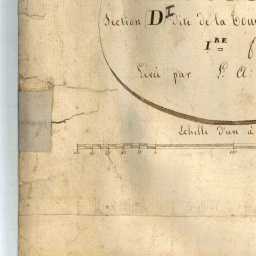 Section D^I dite de la Cou
I^RE
Levé par
Echelle d'un à